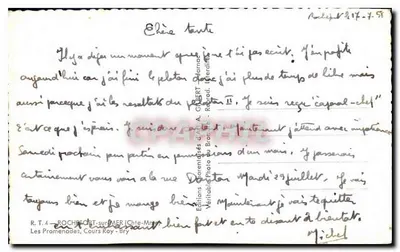 Rochefort le 17-7-51
Chère tante
Il y a déjà un moment que je ne t'ai pas écrit. J'en profite
aujourd'hui car j'ai fini le peloton donc j'ai plus de temps de libre mais
aussi parce que j'ai les résultats du peloton II. Je suis reçu "caporal-chef"
c'est ce que j'espérais. maintenant j'attend avec impatience
Samedi prochain pour partir en permission d'un mois. Je passerais
certainement vous voir à la rue Danton Mardi juillet. Je vais
toujours bien et je mange bien. Maintenant je vais te quitter
en t'embrassant bien fort et en te disant à bientôt.
Michel
R. T. 4 - ROCHEFORT-sur-MER (Chte-Mme)
Les Promenades, Cours Roy - Bry